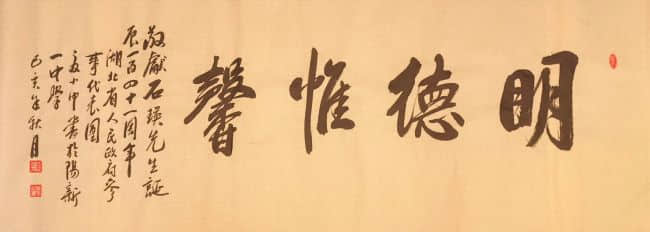 明德惟馨
敬獻石瑛先生誕
辰一百四十周年
湖北省人民政府參
事代表團
書於陽新
一中學
己亥年秋月